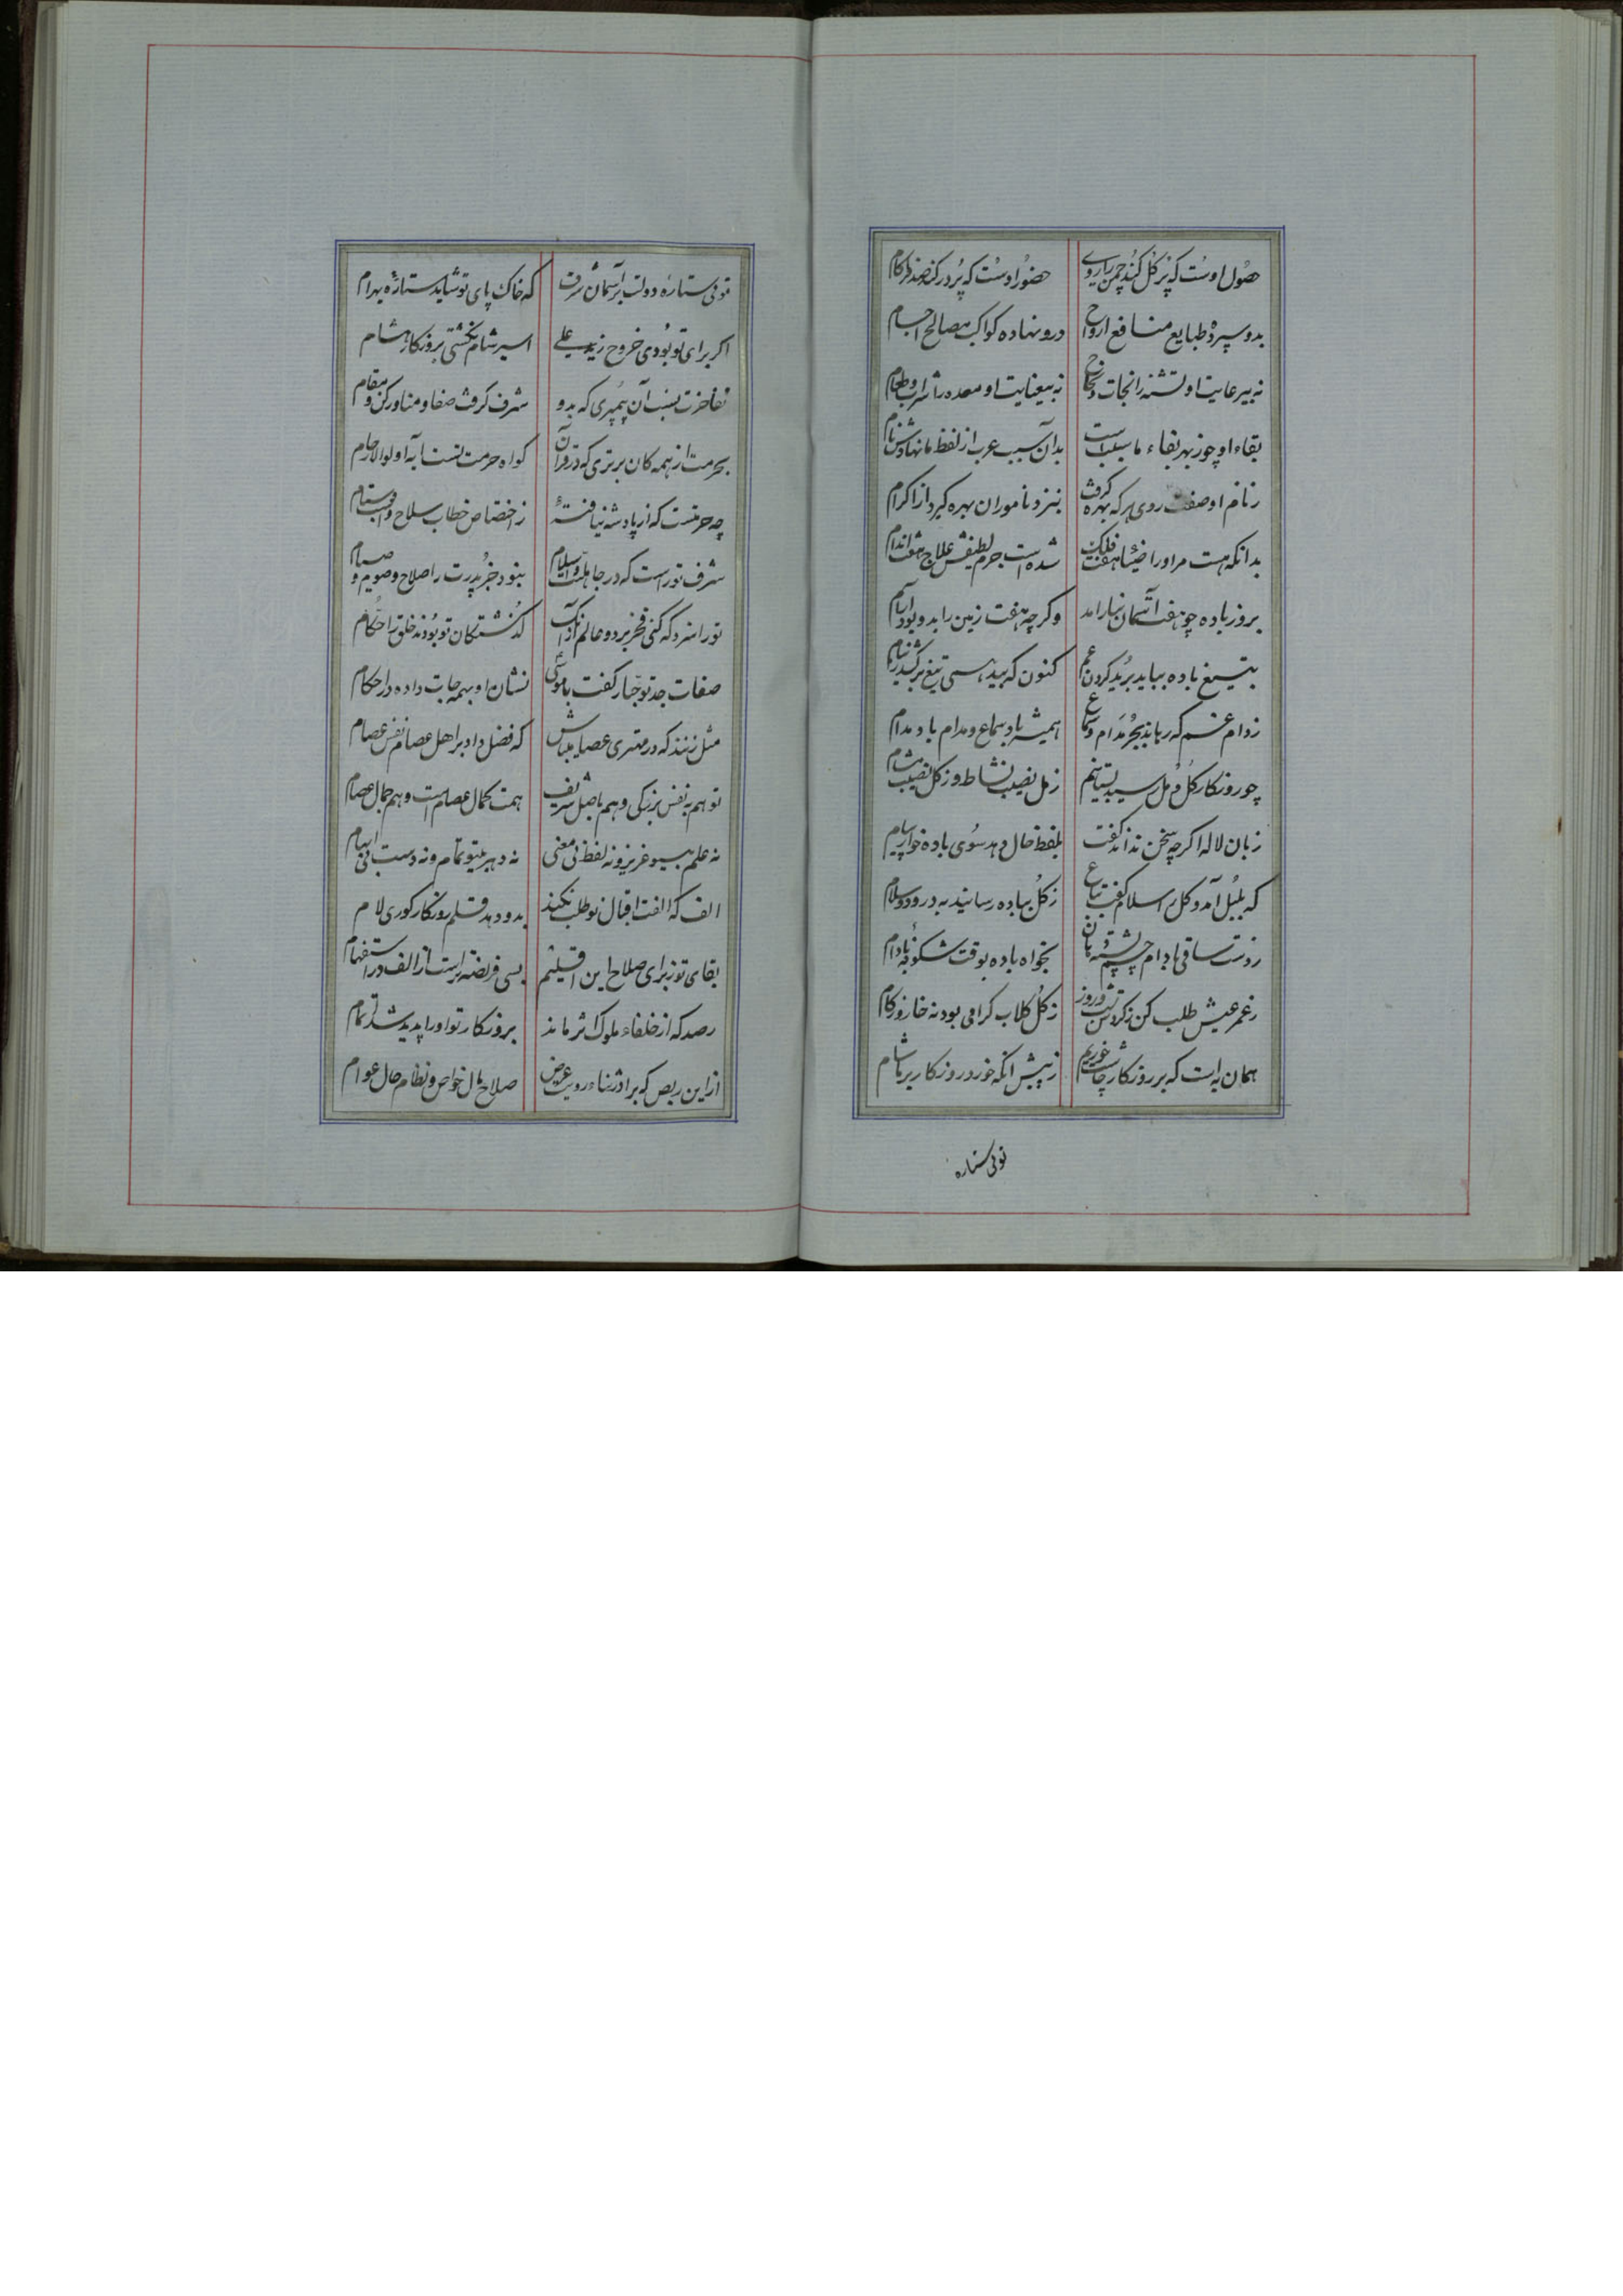 حصول اوست که پر گل کند چمن را روی حضور اوست که پر در کند صدف را کام
بدو سپرده طبایع منافع ارواح درو نهاده کواکب مصالح اجسام
نه بی رعایت او تشنه را نجات و نجاح نه بی عنایت او معده را شراب و طعام
بقاء او چو ز بهر بقاء ما سبب است بدان سبب عرب از لفظ ما نهادش نام
ز نام او صفت روی هر که بهره گرفت بنزد ناموران بهره گیرد از اکرام
بدانکه هست مر او را ضیاء هفت فلک شده است جرم لطیفش علاج هفت اندام
بروز باده چو هفت آسمان نیارامد وگر چه هفت زمین را بدو بود آرام
بتیغ باده بباید برید گردن غم کنون که بید همی تیغ برکشد ز نیام
ز دام غم که رهاند بجز مدام و سماع همیشه باد سماع و مدام باد مدام
چو روزگار گل و مل رسید بستانیم ز مل نصیب نشاط و ز گل نصیب مشام
زبان لاله اگر چه سخن نداند گفت بلفظ حال دهد سوی باده خوار پیام
که بلبل آمد و گل را سلام گفت بباغ ز گل بباده رسانید به درود و سلام
ز دست ساقی بادام چشم پسته دهان بخواه باده بوقت شکوفه بادام
ز عمر عیش طلب کن ز گردش شب و روز ز گل گلاب گرامی بود نه خار و زکام
همان به است که بر روزگار چاشت خوریم ز پیش آنکه خورد روزگار بر ما شام
توئی ستاره
توئی ستاره دولت بر آسمان شرف که خاک پای تو شاید ستاره بهرام
اگر برای تو بودی خروج زید علی اسیر شام نگشتی بروزگار هشام
تفاخرت بنسب آن پیمبری که بدو شرف گرفت صفا و منا و رکن و مقام
بحرمت از همه کان برتری که در قرآن گواه حرمت تست آیه اولوالارحام
چه حرمتست که از پادشه نیافته ز اختصاص خطاب سلاح و اسب و ستام
شرف تو راست که در جاهلیت و اسلام نبود جز پدرت را صلاح و صوم و صیام
تو را سزد که کنی فخر بر دو عالم از آنک گذشتگان تو بودند خلق را حکام
صفات جد تو جبار گفت با موسی نشان او بهمه جاست داده در احکام
مثل زنند که در مهتری عصامی باش که فضل داد بر اهل عصام نفس عصام
تو هم به نفس بزرگی و هم باصل شریف همت کمال عصام است و هم جمال عصام
نه علم بی‌تو عزیز و نه لفظ بی معنی نه دهر بی‌تو تمام و نه دست بی ابهام
الف که الفت اقبال تو طلب نکند بدو دهد قلم روزگار کوری لام
بقای تو ز برای صلاح این اقلیم بسی فریضه‌تر است از الف در استفهام
رصد که از خلفاء ملوک اثر ماند بروزگار تو او را پدید شد اتمام
از این ربض که برادر ثناء روست عوض صلاح بال خواص و نظام حال عوام